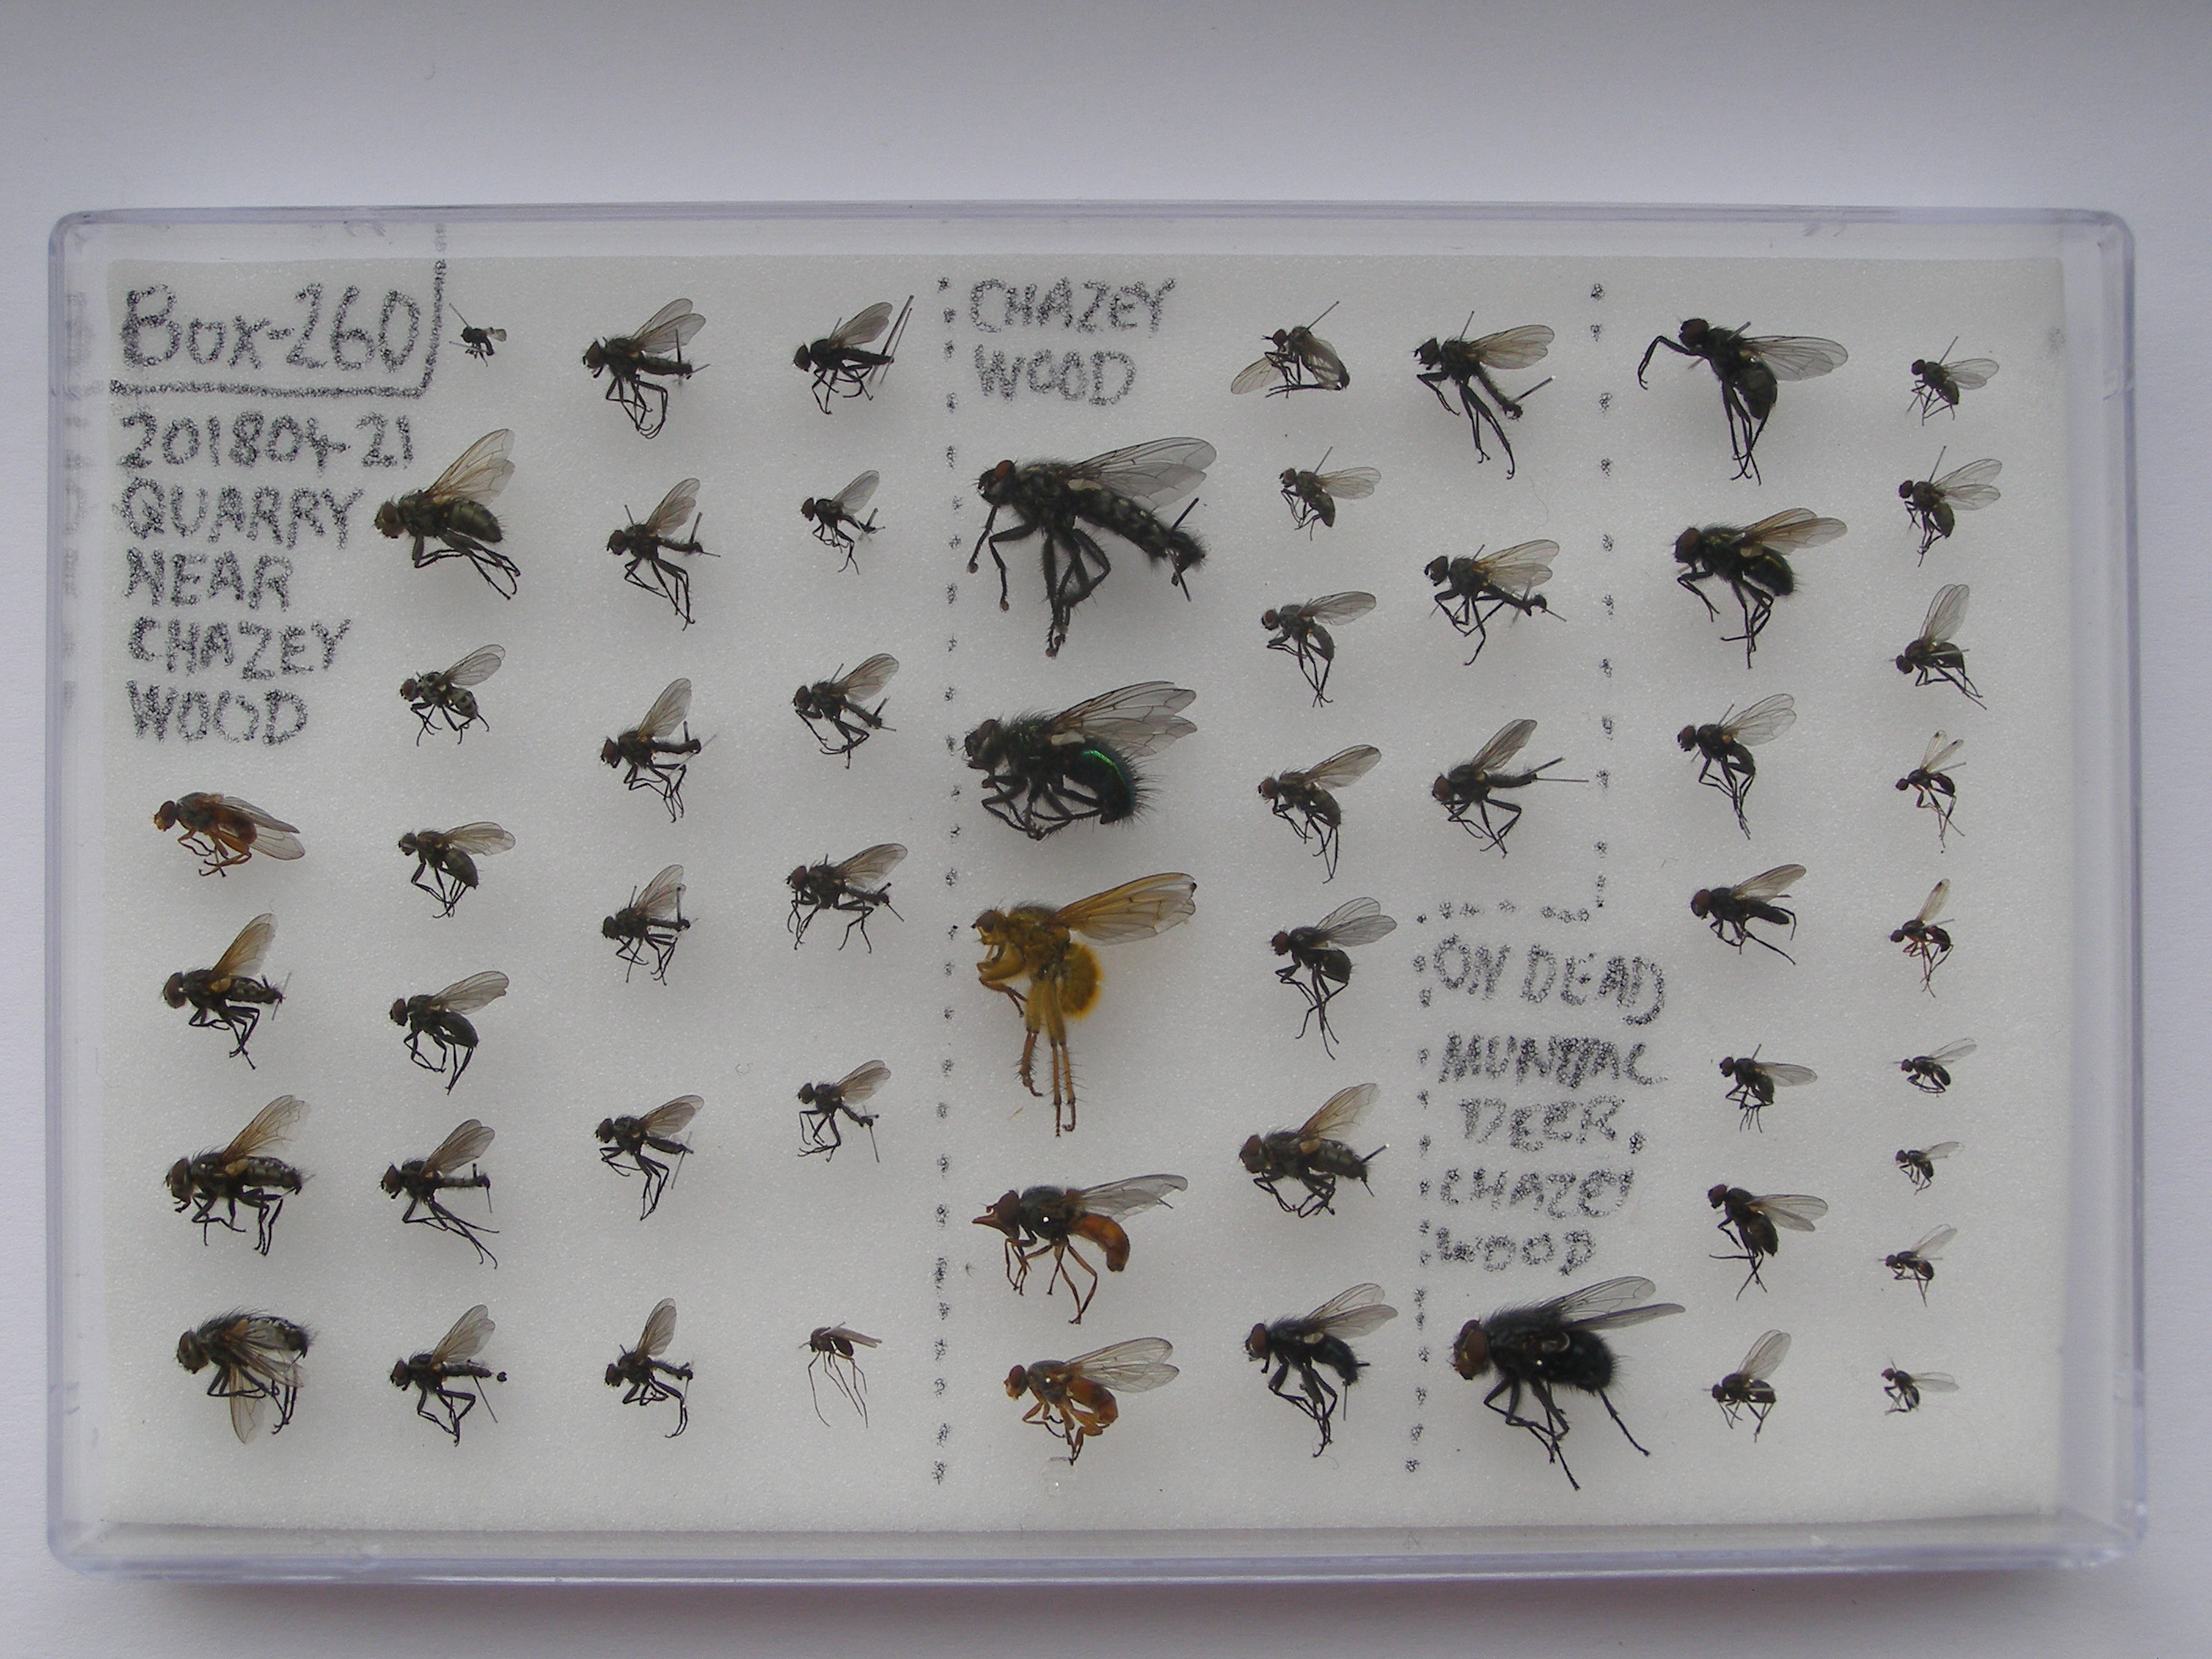 Box-260
201804-21
QUARRY
NEAR
CHAZEY
WOOD
CHAZEY
WOOD
ON DEAD
MUNTJAC
DEER.
CHAZEY
WOOD